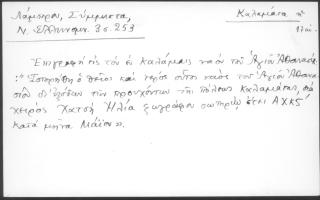 Λάμπρος, Σύμμικτα,
Ν. Ἑλληνομν. 3σ. 253
Καλαμάτα
17ου.
Ἐπιγραφὴ εἰς τὸν ἐν Καλάμαις ναὸν τοῦ Ἁγίου Ἀθανασίου
: "Ἱστορήθη ὁ θεῖος καὶ ἱερὸς οὗτος ναὸς τοῦ Ἁγίου Ἀθανα
σίου δι' ἐξόδων τῶν προυχόντων τῆς πόλεως Καλαμάτας, διὰ
χειρὸς Χατσῆ Ἠλία ζωγράφου σωτηρίῳ ἔτει ΑΧΚϚ'
κατὰ μῆνα Μάϊον".